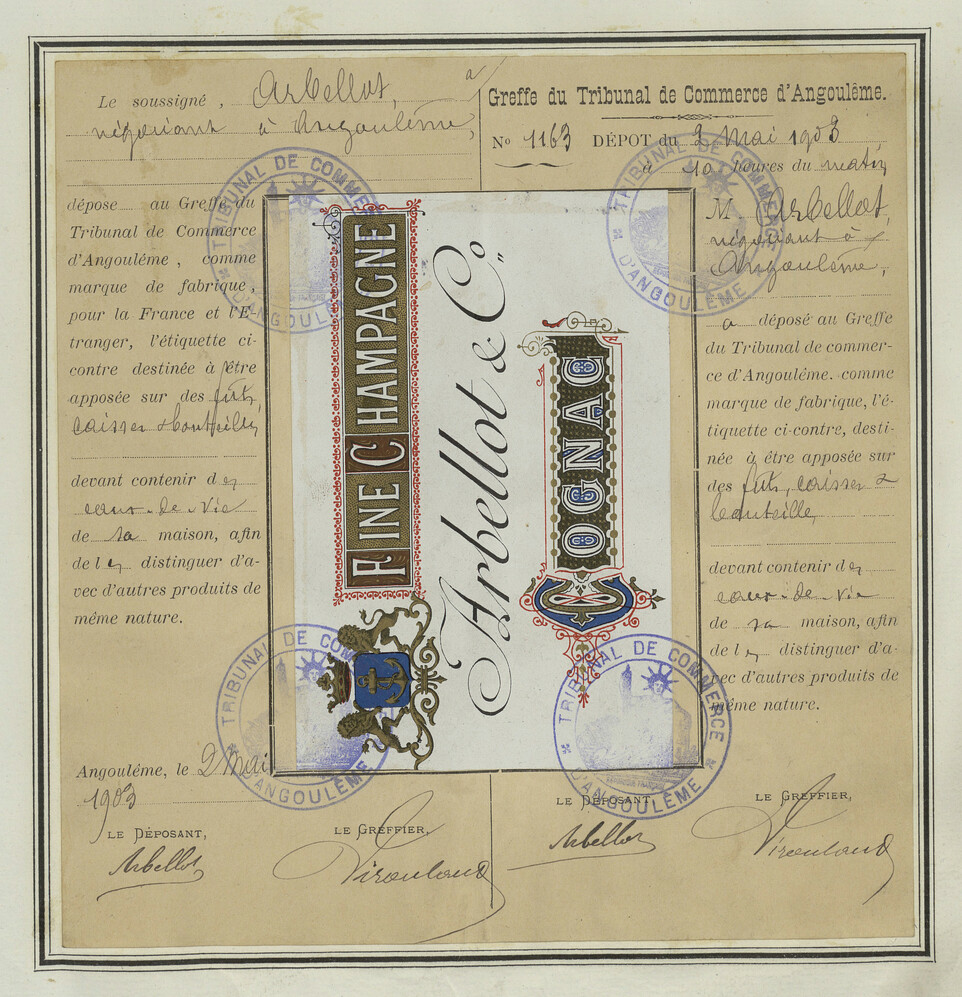 Le soussigné, Arbellot,
négociant à Angoulême,
dépose au Greffe du
Tribunal de Commerce
d'Angoulême, comme
marque de fabrique,
pour la France et l'E-
tranger, l'étiquette ci-
contre destinée à être
apposée sur des fûts,
caisses & bouteilles
devant contenir des
eaux-de-vie
de sa maison, afin
de les distinguer d'a-
vec d'autres produits de
même nature.
Angoulême, le 2 Mai
1903
LE DÉPOSANT,
LE GREFFIER,
Arbellot
FINE CHAMPAGNE
Arbellot & Co.
COGNAC
Greffe du Tribunal de Commerce d'Angoulême.
No 1163 DÉPOT du 2 Mai 1903
à 10 heures du matin
M. Arbellot,
négociant à
Angoulême,
a déposé au Greffe
du Tribunal de commer-
ce d'Angoulême. comme
marque de fabrique, l'é-
tiquette ci-contre, desti-
née à être apposée sur
des fûts, caisses &
bouteilles
devant contenir des
eaux-de-vie
de sa maison, afin
de les distinguer d'a-
vec d'autres produits de
même nature.
LE DÉPOSANT
LE GREFFIER,
Arbellot
TRIBUNAL DE COMMERCE
D'ANGOULÊME
TRIBUNAL DE COMMERCE
D'ANGOULÊME
TRIBUNAL DE COMMERCE
D'ANGOULÊME
TRIBUNAL DE COMMERCE
D'ANGOULÊME